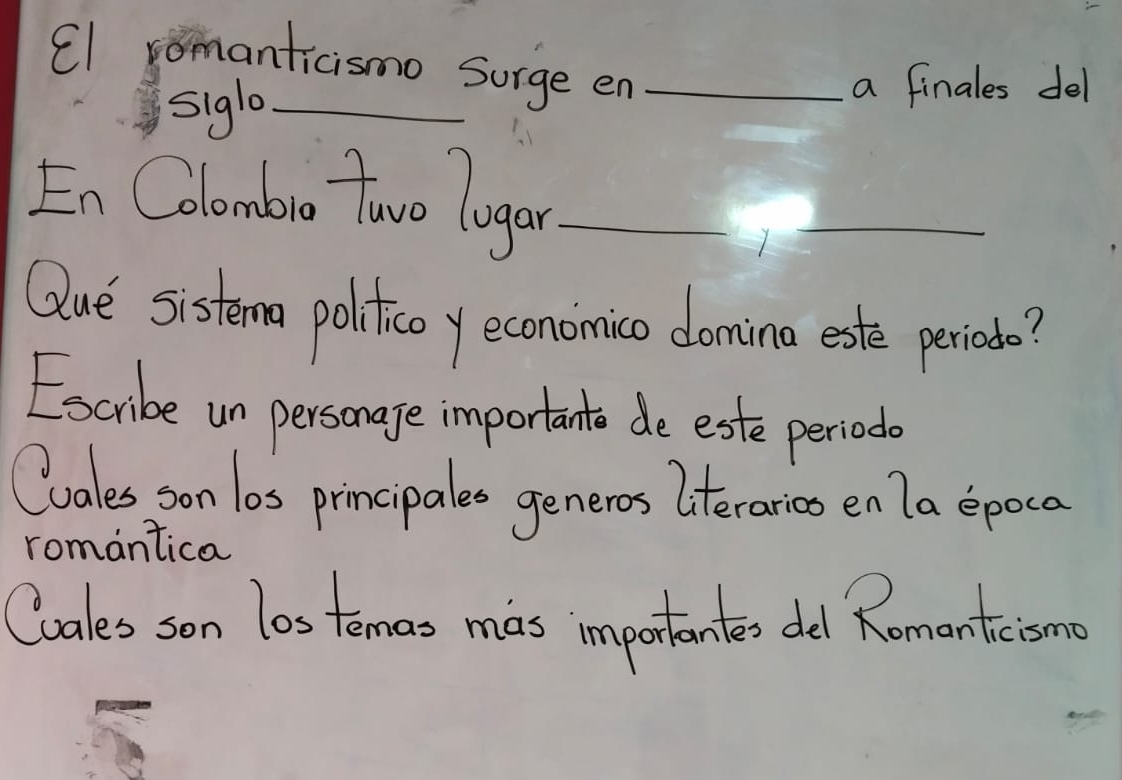 El romanticismo surge en ________ a finales del
siglo ________
En Colombia tuvo lugar ________ y ________
Qué sistema político y económico domina este periodo?
Escribe un personaje importante de este periodo
Cuales son los principales generos literarios en la época
romántica
Cuales son los temas más importantes del Romanticismo